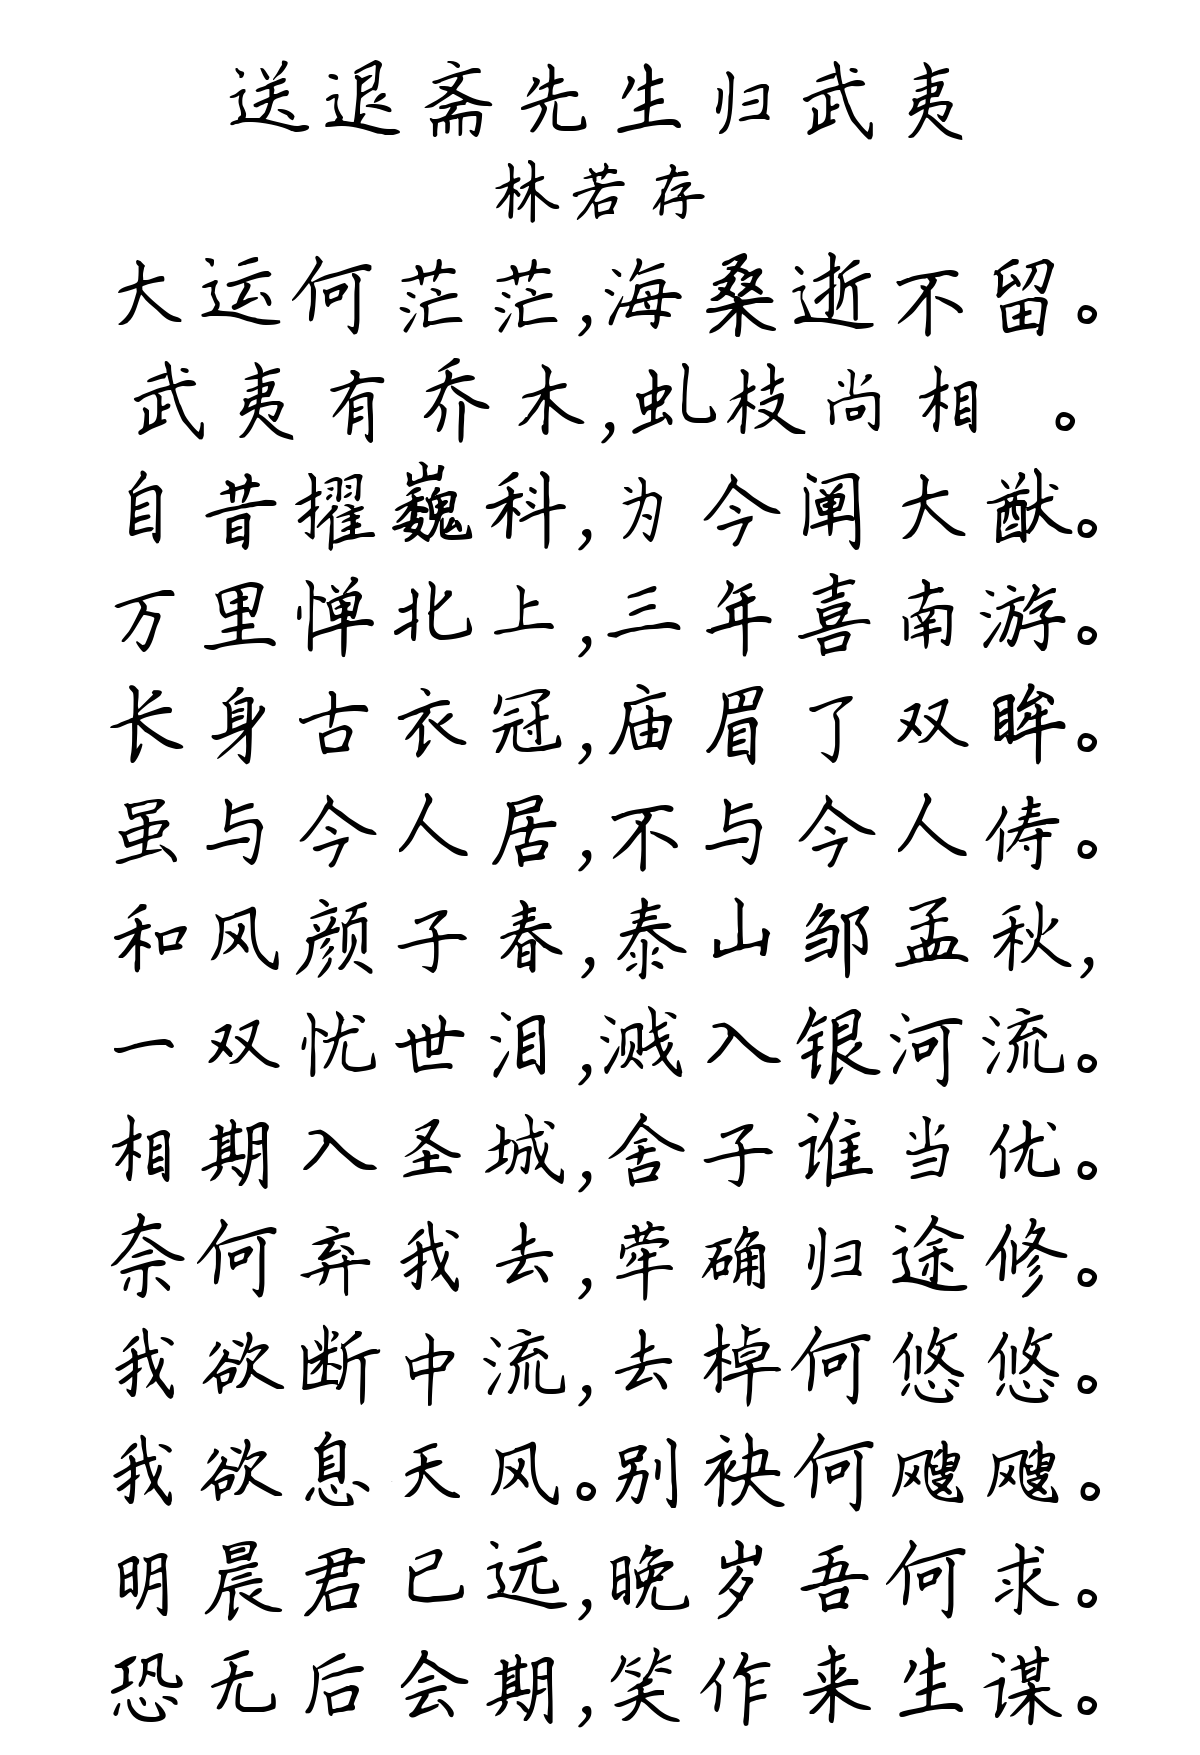 送退斋先生归武夷
林若存
大运何茫茫,海桑逝不留。
武夷有乔木,虬枝尚相 。
自昔擢巍科,为今阐大猷。
万里惮北上,三年喜南游。
长身古衣冠,庙眉了双眸。
虽与今人居,不与今人俦。
和风颜子春,泰山邹孟秋,
一双忧世泪,溅入银河流。
相期入圣城,舍子谁当优。
奈何弃我去,荦确归途修。
我欲断中流,去棹何悠悠。
我欲息天风。别袂何飕飕。
明晨君已远,晚岁吾何求。
恐无后会期,笑作来生谋。